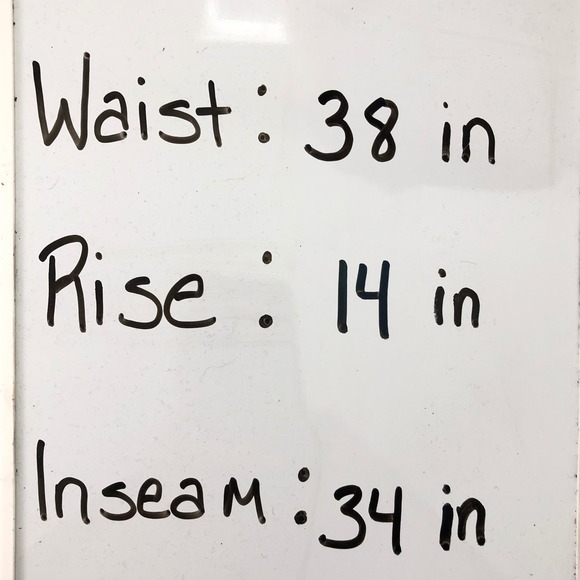 Waist: 38 in
Rise: 14 in
Inseam: 34 in